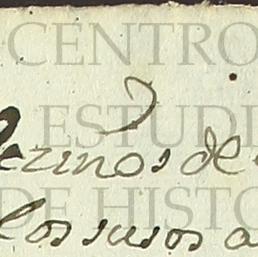 CENTRO
ESTUDI
Vezinos de
DE HISTO
los susos a